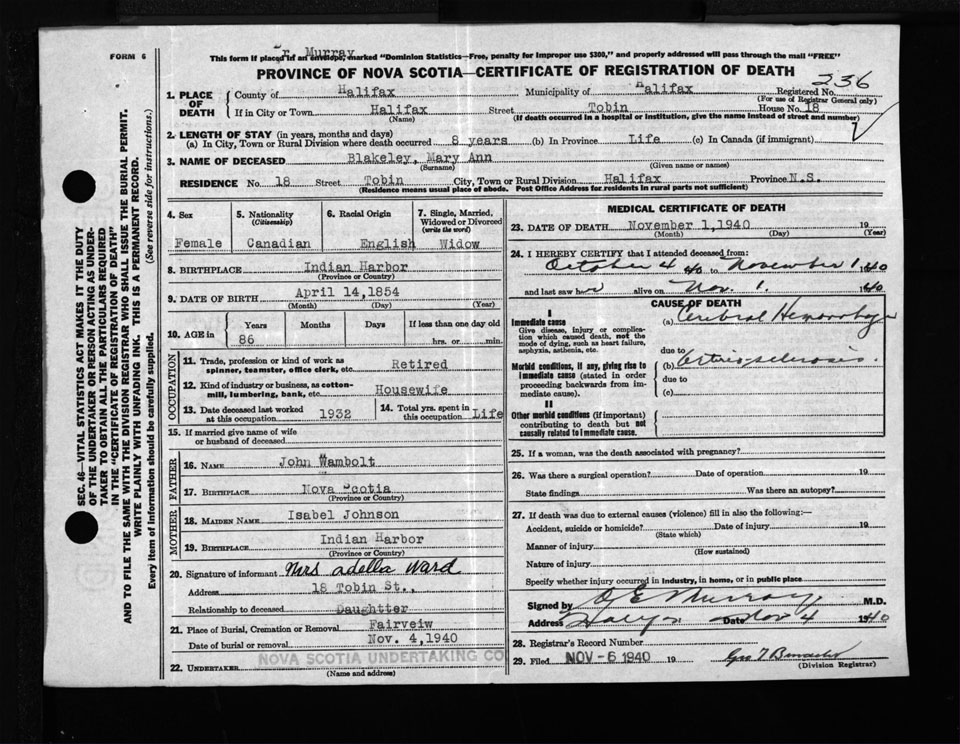 Dr. Murray
FORM 6
This form if placed in an envelope, marked "Dominion Statistics—Free, penalty for improper use $300," and properly addressed will pass through the mail "FREE"
PROVINCE OF NOVA SCOTIA—CERTIFICATE OF REGISTRATION OF DEATH
336
1. PLACE OF DEATH
County of Halifax Municipality of Halifax Registered No.
(For use of Registrar General only)
If in City or Town Halifax Street Tobin House No. 18
(Name) (If death occurred in a hospital or institution, give the name instead of street and number)
2. LENGTH OF STAY (in years, months and days)
(a) In City, Town or Rural Division where death occurred 8 years (b) In Province Life (c) In Canada (if immigrant)
3. NAME OF DECEASED Blakeley, Mary Ann
(Surname) (Given name or names)
RESIDENCE No. 18 Street Tobin City, Town or Rural Division Halifax Province N.S.
(Residence means usual place of abode. Post Office Address for residents in rural parts not sufficient)
4. Sex 5. Nationality (Citizenship) 6. Racial Origin 7. Single, Married, Widowed or Divorced (write the word)
Female Canadian English Widow
8. BIRTHPLACE Indian Harbor
(Province or Country)
9. DATE OF BIRTH April 14, 1854
(Month) (Day) (Year)
10. AGE in Years Months Days If less than one day old
86 hrs. or min.
OCCUPATION
11. Trade, profession or kind of work as spinner, teamster, office clerk, etc. Retired
12. Kind of industry or business, as cotton-mill, lumbering, bank, etc. Housewife
13. Date deceased last worked at this occupation 1932 14. Total yrs. spent in this occupation Life
15. If married give name of wife or husband of deceased
FATHER
16. NAME John Wambolt
17. BIRTHPLACE Nova Scotia
(Province or Country)
MOTHER
18. MAIDEN NAME Isabel Johnson
19. BIRTHPLACE Indian Harbor
(Province or Country)
20. Signature of informant Mrs Adella Ward
Address 18 Tobin St.,
Relationship to deceased Daughtter
21. Place of Burial, Cremation or Removal Fairveiw
Date of burial or removal Nov. 4, 1940
22. UNDERTAKER NOVA SCOTIA UNDERTAKING CO
(Name and address)
MEDICAL CERTIFICATE OF DEATH
23. DATE OF DEATH November 1, 1940 19
(Month) (Day) (Year)
24. I HEREBY CERTIFY that I attended deceased from:
October 4 40 to November 1 1940
and last saw her alive on Nov. 1. 1940
CAUSE OF DEATH
I
Immediate cause
Give disease, injury or complication which caused death, not the mode of dying, such as heart failure, asphyxia, asthenia, etc.
(a) Cerebral Hemorrhage
due to
Morbid conditions, if any, giving rise to immediate cause (stated in order proceeding backwards from immediate cause).
(b) Arterio-sclerosis
due to
(c)
II
Other morbid conditions (if important) contributing to death but not causally related to immediate cause.
25. If a woman, was the death associated with pregnancy?
26. Was there a surgical operation? Date of operation 19
State findings Was there an autopsy?
27. If death was due to external causes (violence) fill in also the following:—
Accident, suicide or homicide? Date of injury 19
(State which)
Manner of injury
(How sustained)
Nature of injury
Specify whether injury occurred in industry, in home, or in public place
Signed by Murray M.D.
Address Date Nov 4 1940
28. Registrar's Record Number
29. Filed NOV - 6 1940 19
(Division Registrar)
SEC. 46—VITAL STATISTICS ACT MAKES IT THE DUTY
OF THE UNDERTAKER OR PERSON ACTING AS UNDERTAKER TO OBTAIN ALL THE PARTICULARS REQUIRED
IN THE "CERTIFICATE OF REGISTRATION OF DEATH"
AND TO FILE THE SAME WITH THE DIVISION REGISTRAR WHO SHALL ISSUE THE BURIAL PERMIT.
WRITE PLAINLY WITH UNFADING INK. THIS IS A PERMANENT RECORD.
Every item of information should be carefully supplied. (See reverse side for instructions.)